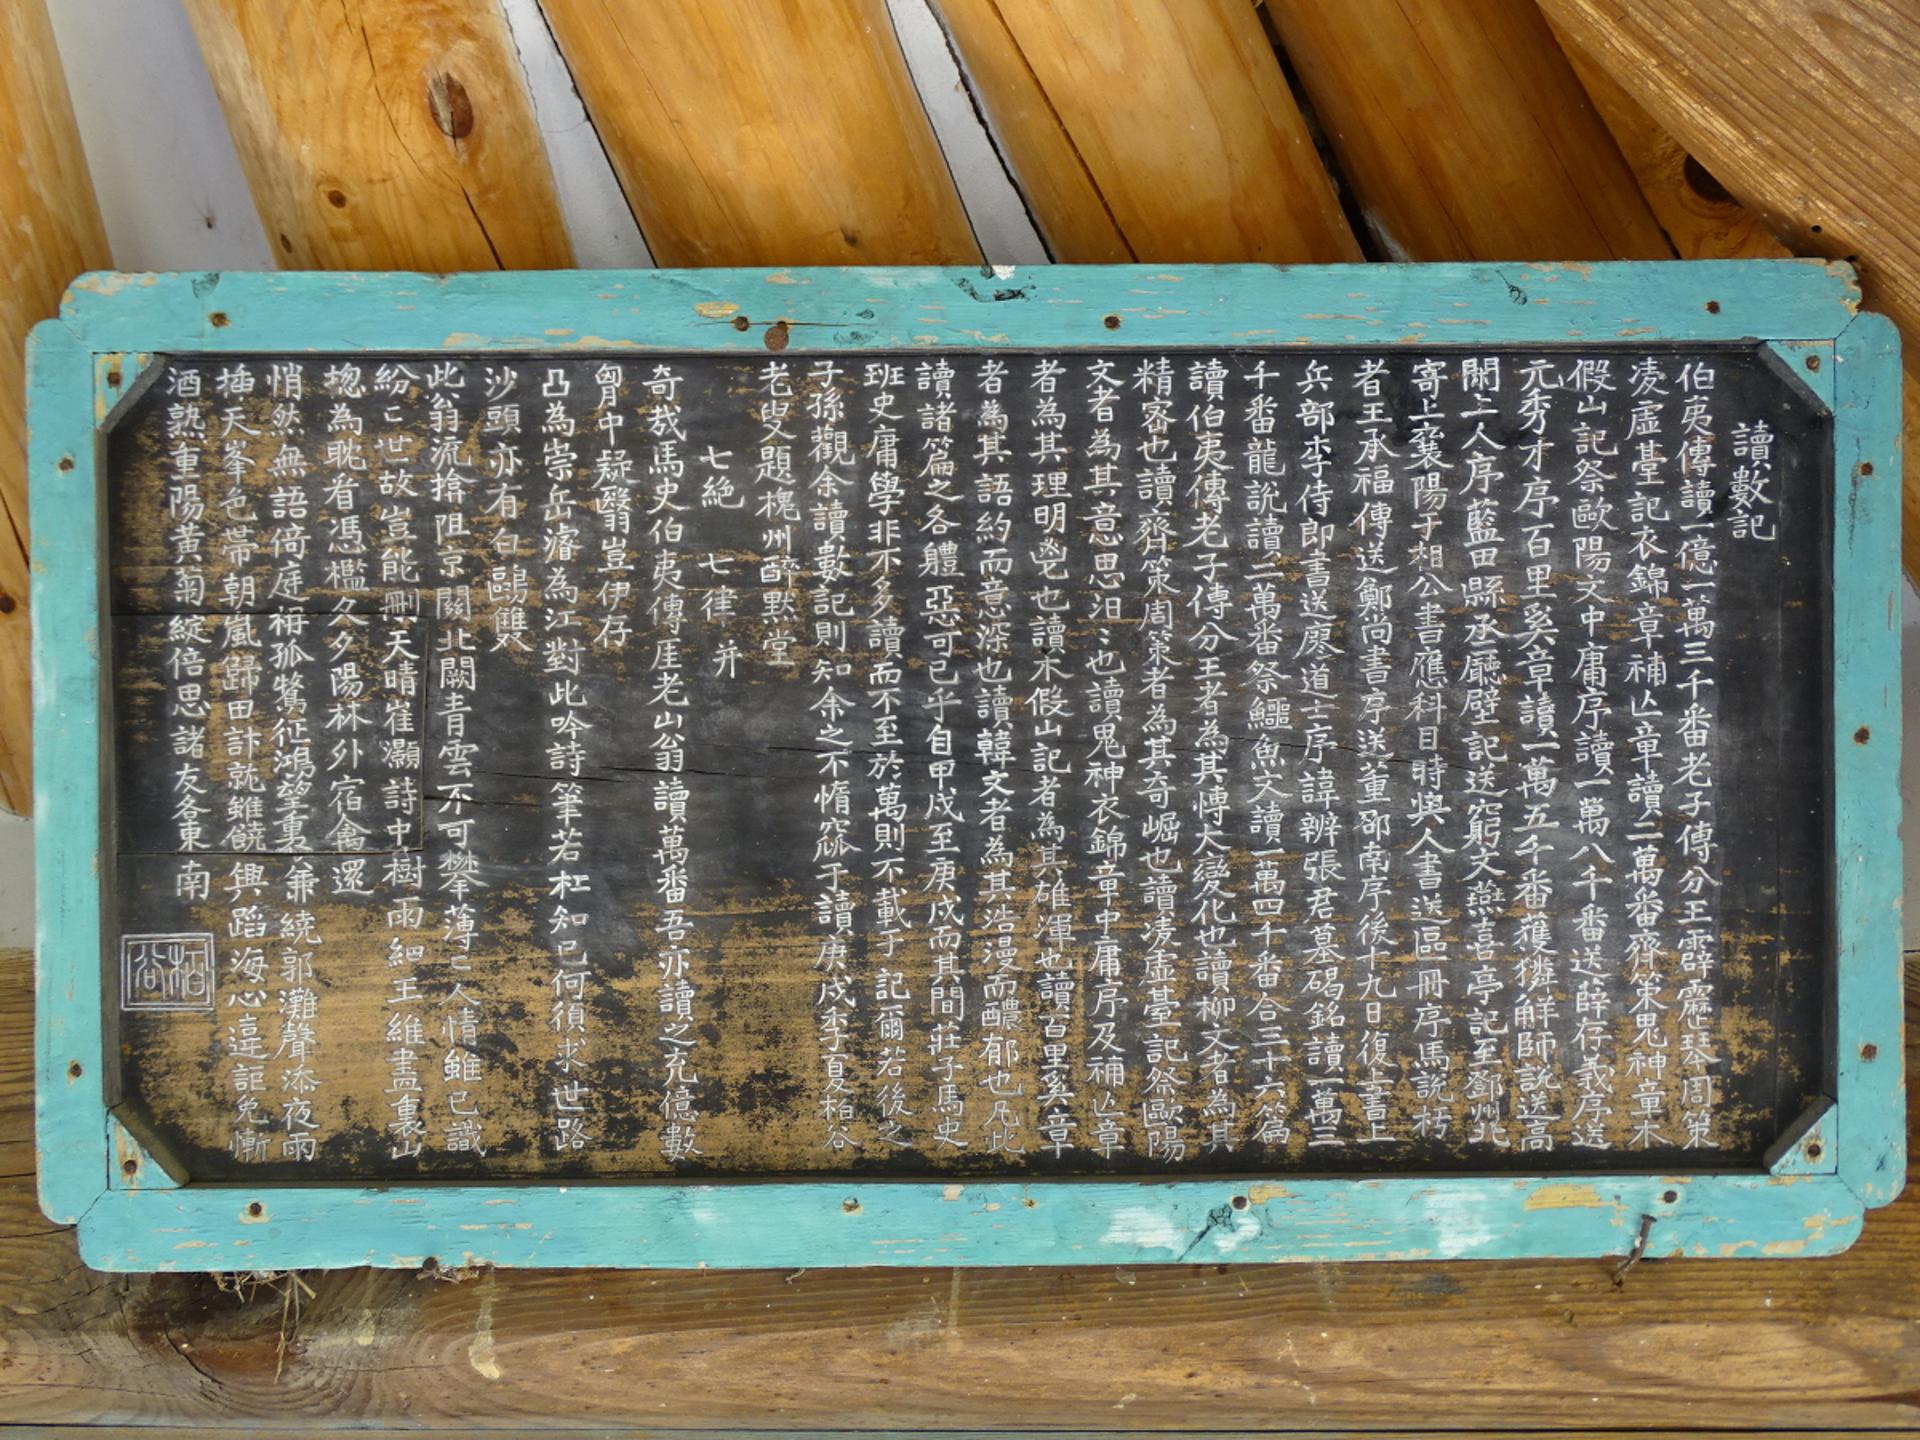 讀數記
伯夷傳讀一億一萬三千番老子傳分王霹靂琴周策
凌虛臺記衣錦章補亡章讀二萬番齊策鬼神章木
假山記祭歐陽文中庸序讀一萬八千番送薛存義序送
元秀才序百里奚章讀一萬五千番獲獜解師說送高
閑上人序藍田縣丞廳壁記送窮文燕喜亭記至鄧州北
寄上襄陽于相公書應科目時與人書送區冊序馬說杇
者王承福傳送鄭尚書序送董邵南序後十九日復上書上
兵部李侍郎書送廖道士序諱辨張君墓碣銘讀一萬三
千番龍說讀二萬番祭鱷魚文讀一萬四千番合三十六篇
讀伯夷傳老子傳分王者為其愽大變化也讀柳文者為其
精密也讀齊策周策者為其奇崛也讀凌虛臺記祭歐陽
文者為其意思汩〻也讀鬼神衣錦章中庸序及補亡章
者為其理明鬯也讀木假山記者為其雄渾也讀百里奚章
者為其語約而意深也讀韓文者為其浩漫而醲郁也凡此
讀諸篇之各軆惡可已乎自甲戌至庚戌而其間莊子馬史
班史庸學非不多讀而不至於萬則不載于記爾若後之
子孫觀余讀數記則知余之不惰窳于讀庚戌季夏栢谷
老叟題槐州醉默堂
七絶 七律 并
奇哉馬史伯夷傳厓老山翁讀萬番吾亦讀之充億數
匈中疑翳豈伊存
凸為崇岳濬為江對此吟詩筆若杠知已何須求世路
沙頭亦有白鷗雙
此翁流搶阻京關北闕青雲不可攀薄〻人情雖已識
紛〻世故豈能刪天晴崔灝詩中樹雨細王維畫裏山
揔為耽看憑檻久夕陽林外宿禽還
悄然無語倚庭梧孤鶩征鴻望裏兼繞郭灘聲添夜雨
揷天峯色帶朝嵐歸田計就雖饒興蹈海心違詎免慚
酒熟重陽黃菊綻倍思諸友各東南
栢谷